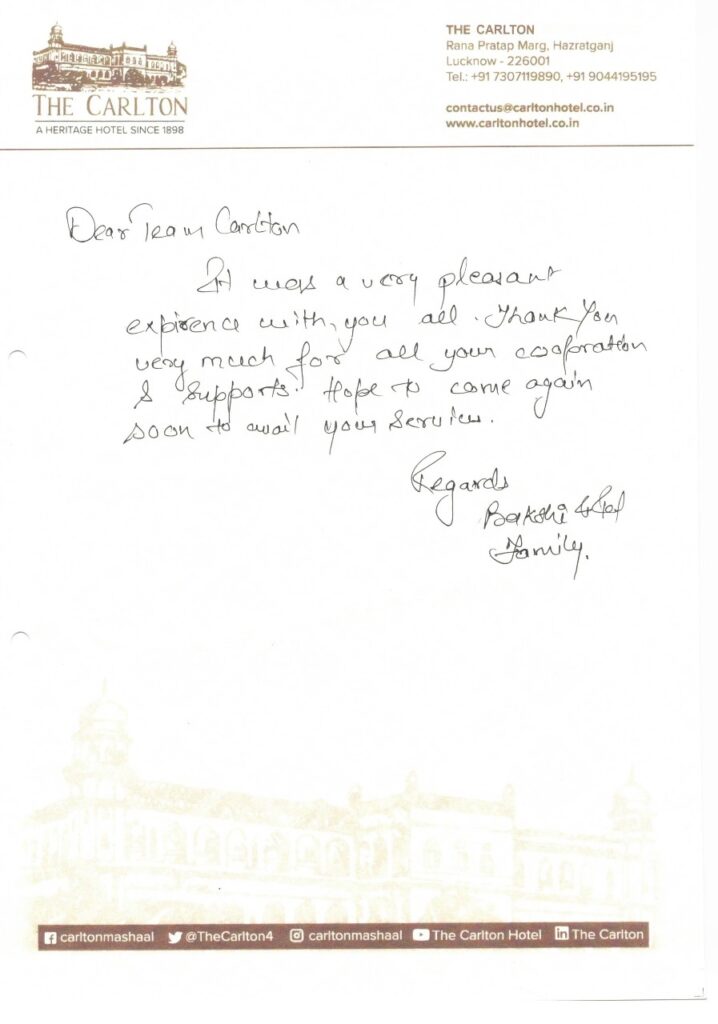 THE CARLTON
A HERITAGE HOTEL SINCE 1898
THE CARLTON
Rana Pratap Marg, Hazratganj
Lucknow - 226001
Tel.: +91 7307119890, +91 9044195195
contactus@carltonhotel.co.in
www.carltonhotel.co.in
Dear Team Carlton
It was a very pleasant
expirence with, you all. Thank You
very much for all your cooporation
& supports. Hope to come again
soon to avail your services.
Regards
Bakshi &
Family.
carltonmashaal @TheCarlton4 carltonmashaal The Carlton Hotel The Carlton